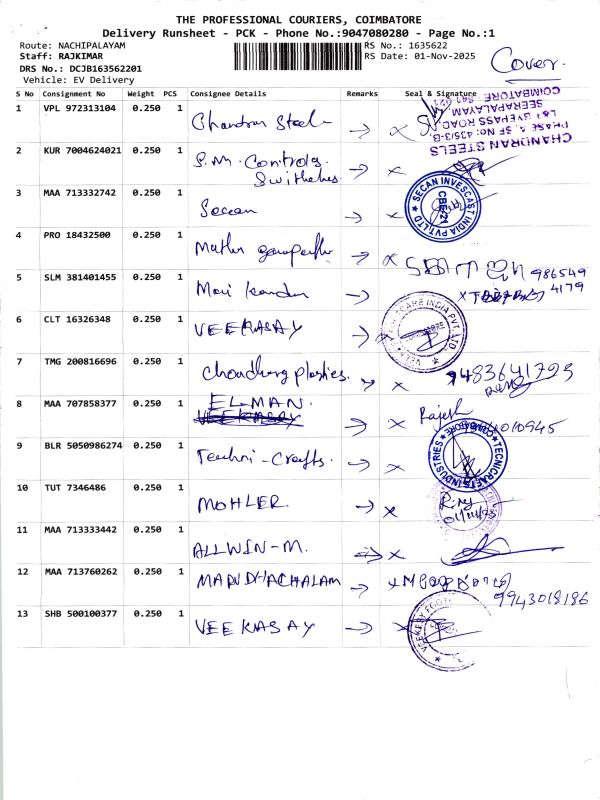 THE PROFESSIONAL COURIERS, COIMBATORE
Delivery Runsheet - PCK - Phone No.:9047080280 - Page No.:1
Route: NACHIPALAYAM
RS No.: 1635622
Staff: RAJKIMAR
RS Date: 01-Nov-2025
Cover.
DRS No.: DCJB163562201
Vehicle: EV Delivery
S No Consignment No Weight PCS Consignee Details Remarks Seal & Signature
1 VPL 972313104 0.250 1 Chandran Steel → x
CHANDRAN STEELS
PHASE A, SF No: 435/3-B
L&T BYEPASS ROAD
SEERAPALAYAM
COIMBATORE - 641 021
2 KUR 7004624021 0.250 1 S.M. Controls → x
Switches
3 MAA 713332742 0.250 1 Secan → x
SECAN INVESCAST INDIA PVT. LTD
CBE-21
4 PRO 18432500 0.250 1 → x
986549
4179
5 SLM 381401455 0.250 1 Mari → x
6 CLT 16326348 0.250 1 VEEKASAY → x
CARE INDIA PVT. LTD.
7 TMG 200816696 0.250 1 Choudhary plastics. → x
8 MAA 707858377 0.250 1 EL-MAN. x Rajesh
VEEKASAY
9 BLR 5050986274 0.250 1 Techni-Crafts. → x
TECNICRAFTS INDUSTRIES
10 TUT 7346486 0.250 1 MOHLER → x
11 MAA 713333442 0.250 1 ALLWIN-M. → x
12 MAA 713760262 0.250 1 MARUDHACHALAM → x
9943018186
13 SHB 500100377 0.250 1 VEEKASAY → x